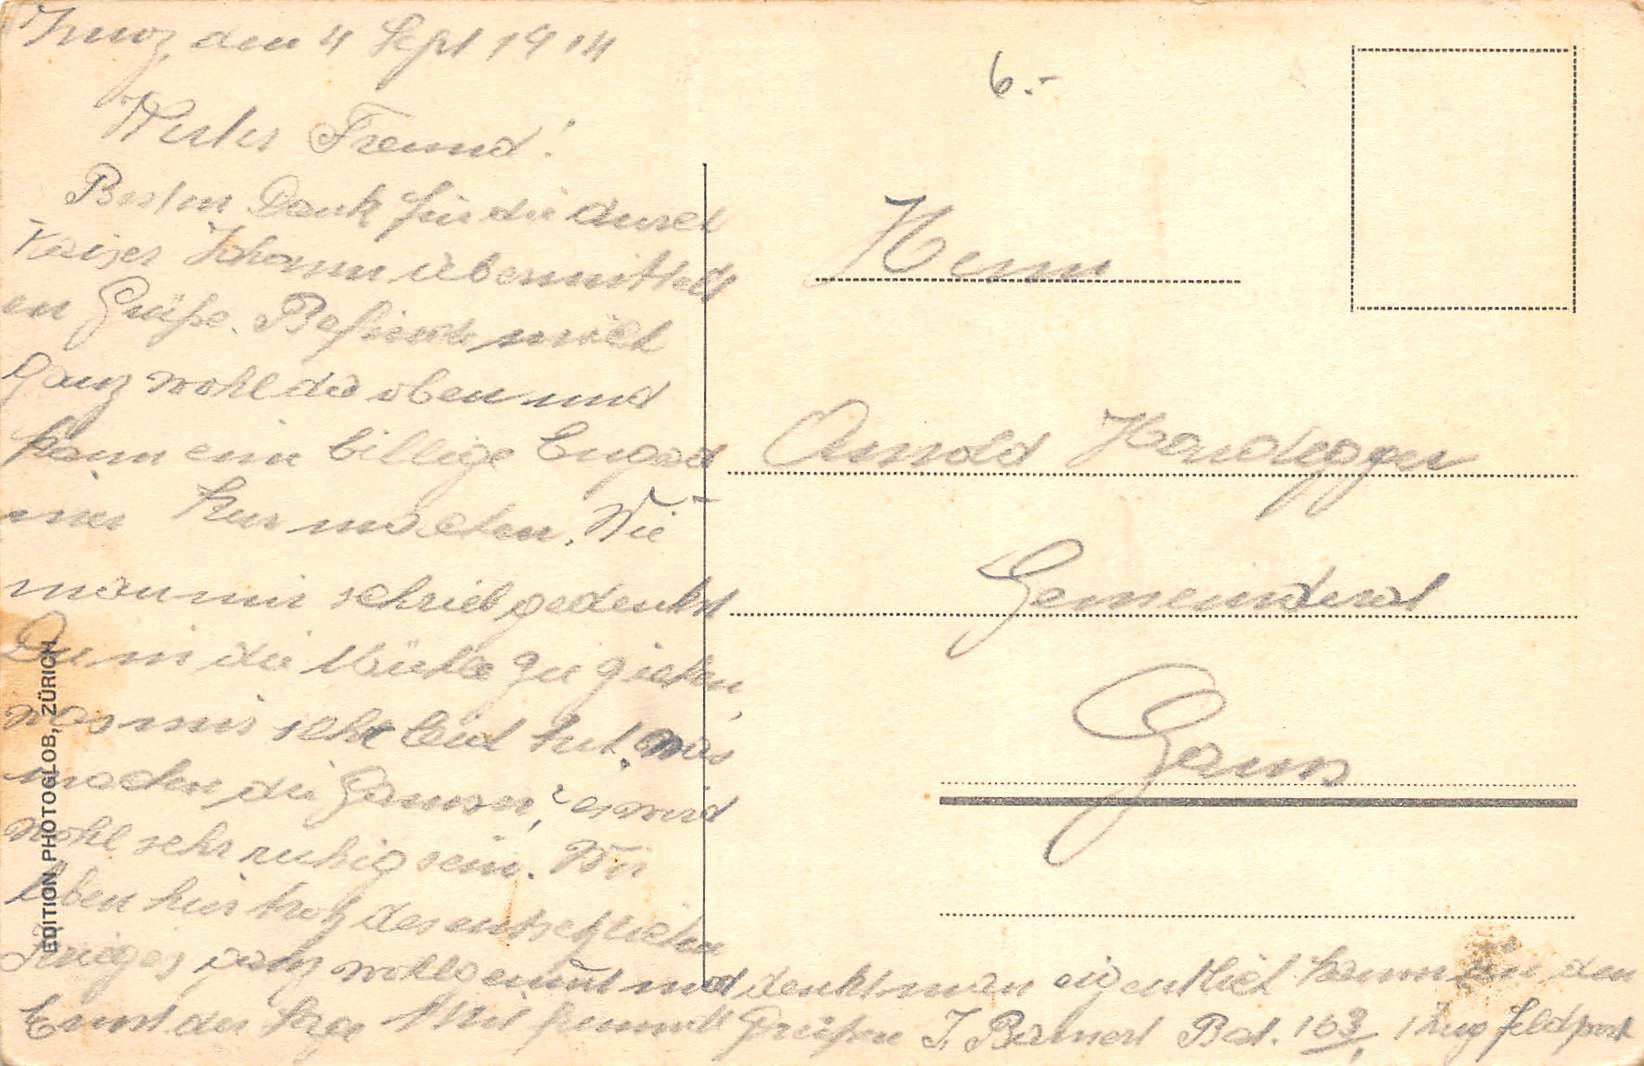 Zuoz, den 4 Sept 1914
Werter Freund!
Besten Dank für die durch
Kaiser Johann übermittelt
en Grüße. Befinde mich
ganz wohl da oben und
kann eine billige Engad
iner Kur machen. Wie
man mir schrieb gedenkst
Du in die Mühle zu ziehen,
was mir sehr leid tut. was
machen die Gamsen, ? es wird
wohl sehr ruhig sein. Wir
leben hier trotz des entsetzlichen
Krieges ganz wohlgemut und denkt man eigentlich kaum an den
Ernst der Lage Mit freundl Grüßen J. Bernert Bat. 163, 1 Zug Feldpost
6.-
Herrn
Arnold Handegger
Gemeinderat
Gams
EDITION PHOTOGLOB, ZÜRICH